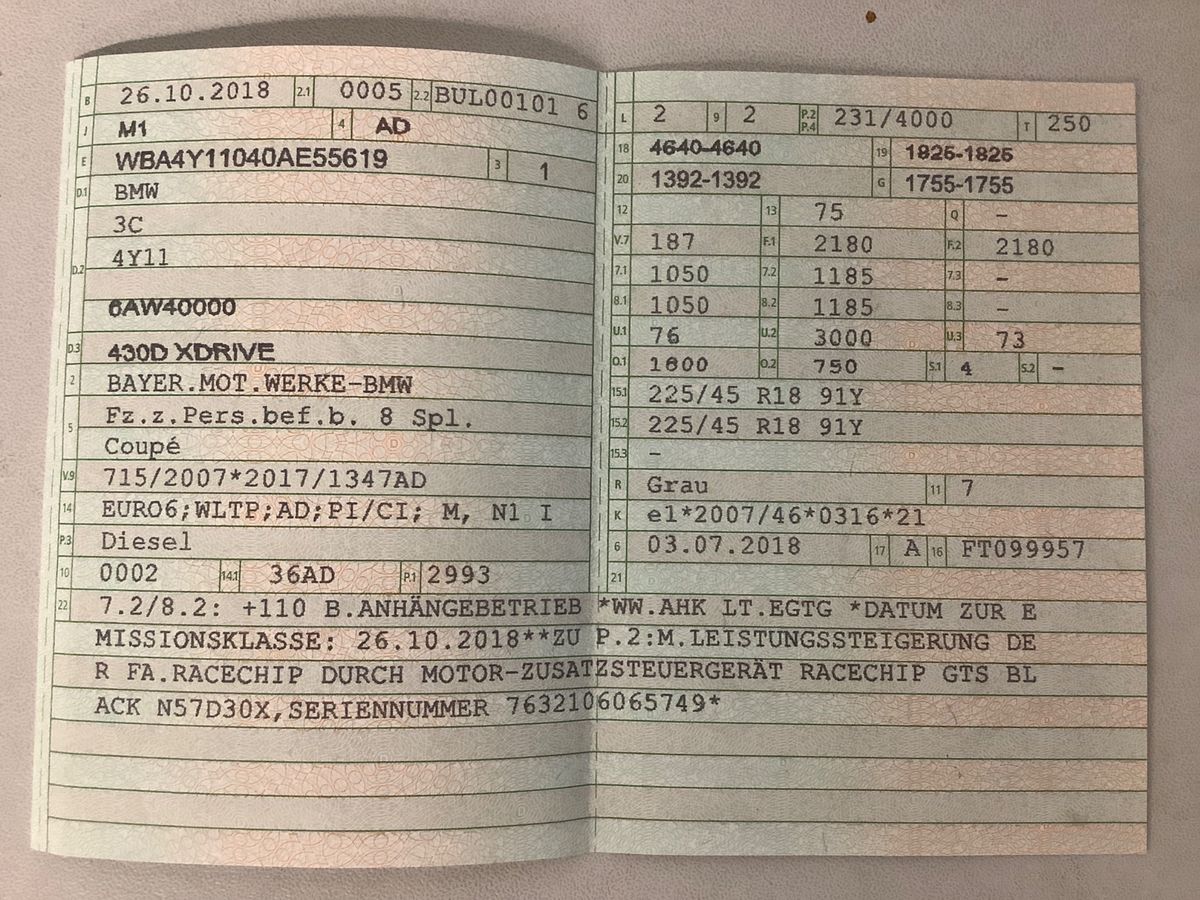 B 26.10.2018 2.1 0005 2.2 BUL00101 6
J M1 4 AD
E WBA4Y11040AE55619 3 1
D.1 BMW
3C
D.2 4Y11
6AW40000
D.3 430D XDRIVE
2 BAYER.MOT.WERKE-BMW
5 Fz.z.Pers.bef.b. 8 Spl.
Coupé
V.9 715/2007*2017/1347AD
14 EURO6;WLTP;AD;PI/CI; M, N1 I
P.3 Diesel
10 0002 14.1 36AD P.1 2993
L 2 9 2 P.2 P.4 231/4000 T 250
18 4640-4640 19 1825-1825
20 1392-1392 G 1755-1755
12 13 75 Q –
V.7 187 F.1 2180 F.2 2180
7.1 1050 7.2 1185 7.3 –
8.1 1050 8.2 1185 8.3 –
U.1 76 U.2 3000 U.3 73
O.1 1800 O.2 750 S.1 4 S.2 –
15.1 225/45 R18 91Y
15.2 225/45 R18 91Y
15.3 –
R Grau 11 7
K e1*2007/46*0316*21
6 03.07.2018 17 A 16 FT099957
21
22 7.2/8.2: +110 B.ANHÄNGEBETRIEB *WW.AHK LT.EGTG *DATUM ZUR E
MISSIONSKLASSE: 26.10.2018**ZU P.2:M.LEISTUNGSSTEIGERUNG DE
R FA.RACECHIP DURCH MOTOR-ZUSATZSTEUERGERÄT RACECHIP GTS BL
ACK N57D30X,SERIENNUMMER 7632106065749*